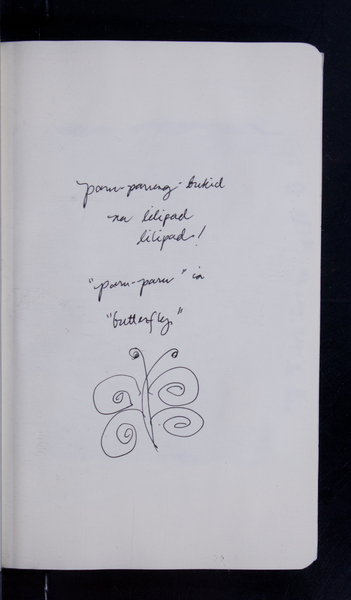 paru-parung-bukid
na lilipad
lilipad!
"paru-paru" is
"butterfly."